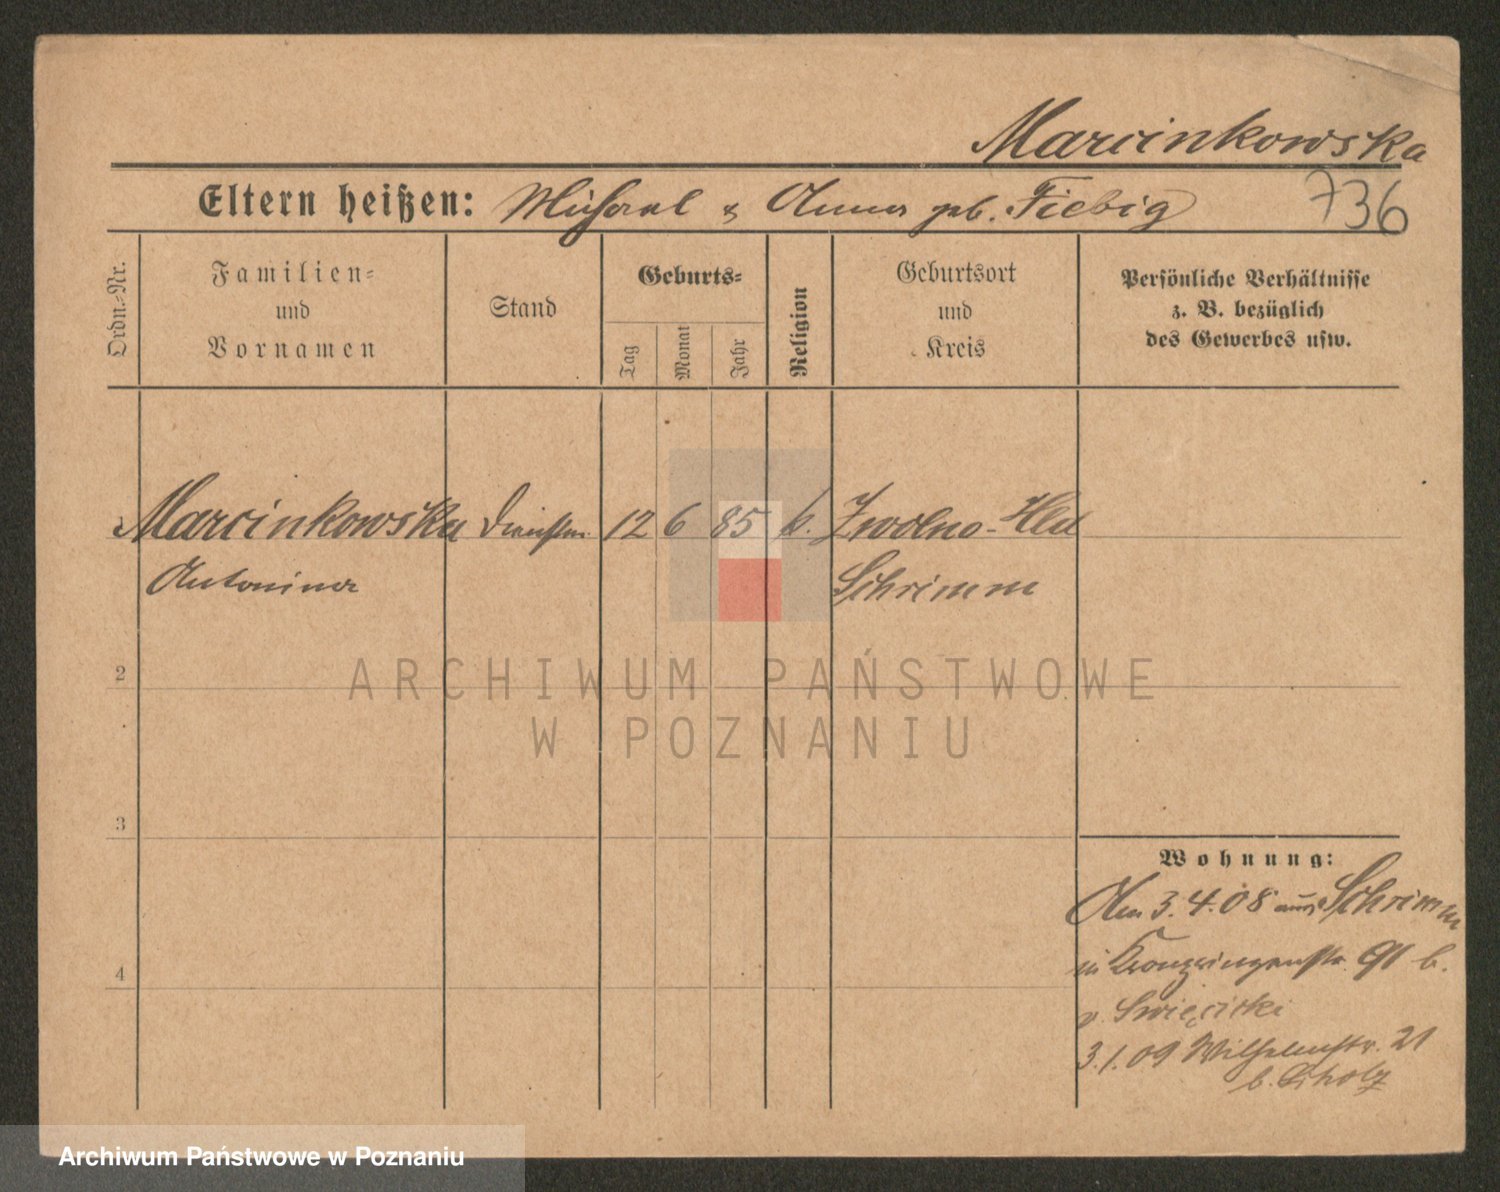 Marcinkowska
Eltern heißen: Michael & Anna geb. Fiebig
736
Ordn.-Nr.
Familien-
und
Vornamen
Stand
Geburts-
Tag
Monat
Jahr
Religion
Geburtsort
und
Kreis
Persönliche Verhältnisse
z. B. bezüglich
des Gewerbes usw.
1 Marcinkowska Dienstm. 12 6 85 k. Zwolno-Hld
Antonina Schrimm
2
ARCHIWUM PAŃSTWOWE
W POZNANIU
3
Wohnung:
Am 3.4.08 aus Schrimm
in Kronprinzenstr. 91 b.
v. Święcicki
3.1.09 Wilhelmstr. 21
b. Scholz
4
Archiwum Państwowe w Poznaniu